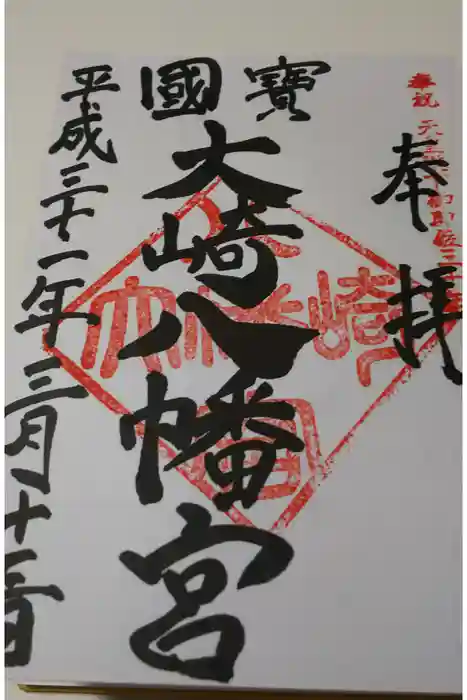 奉祝 天皇陛下御即位三
奉拝
國寶
大崎八幡宮
平成三十一年三月十三日